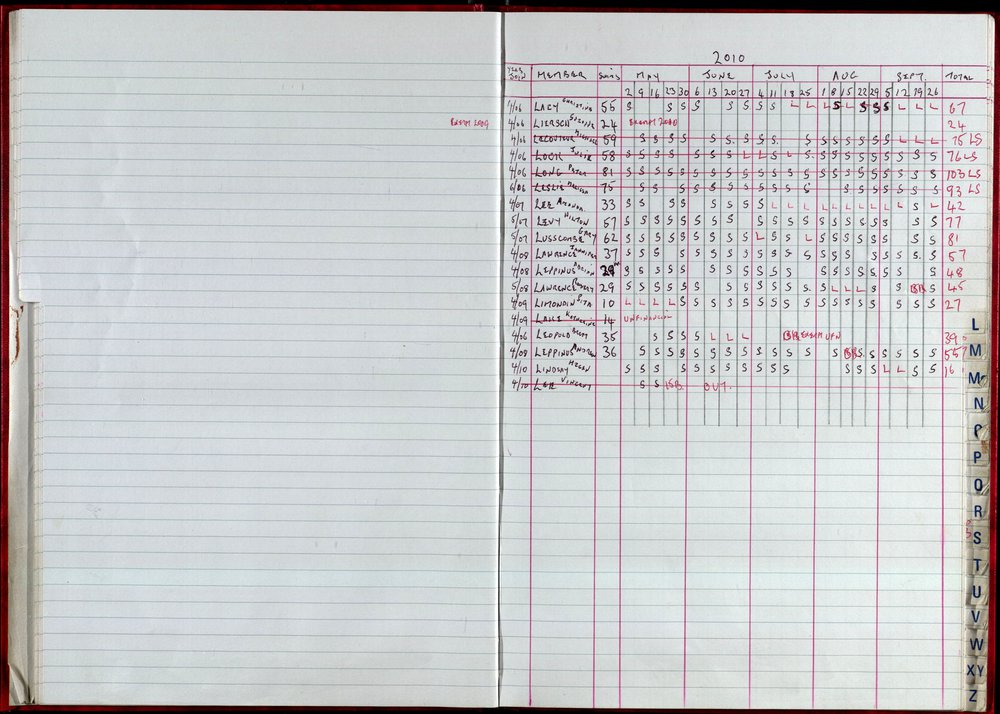 2010
YEAR JOIN MEMBER SWIMS MAY JUNE JULY AUG SEPT. TOTAL
2 9 16 23 30 6 13 20 27 4 11 18 25 1 8 15 22 29 5 12 19 26
4/06 LACY CHRISTINE 56 S S S S S S S S L L L S L S S S L L L 67
EXEMPT 2009 4/06 LIERSCH SUZANNE 24 EXEMPT 2010 24
4/06 LECOUTEUR 59 S S S S S S S S S S S S S S S S L L L 75 LS
4/06 LOCK JULIE 58 S S S S S S S L L S L S S S S S S S S S S S 76 LS
4/06 LONG PETER 81 S S S S S S S S S S S S S S S S S S S S S S 103 LS
6/06 LESLIE 75 S S S S S S S S S S S S S S S S S S 93 LS
4/07 LEE AMANDA 33 S S S S S S S S L L L L L L L L L S L 42
5/07 LEVY HILTON 57 S S S S S S S S S S S S S S S S S S S S 77
5/07 LUSSCOMBE GARY 62 S S S S S S S S S L S S L S S S S S S S 81
4/08 LAWRENCE JENNIFER 37 S S S S S S S S S S S S S S S S S S S S 57
4/08 LIPPINUS 29 S S S S S S S S S S S S S S S S S S S 48
5/08 LAWRENCE ROBERT 29 S S S S S S S S S S S S L L L S S BB S 45
4/09 LIMONDIN RITA 10 L L L L S S S S S S S S S S S S S S S S 27
4/09 LAKE KATHERINE 14 UNFINANCIAL
4/06 LEOPOLD 35 S S S S L L L BB EXEMPT UFN 39
4/08 LIPPINUS ANDREW 36 S S S S S S S S S S S S S BB S S S S S S 55
4/10 LINDSAY HELEN S S S S S S S S S S S S S L L S S 16
4/10 LEE VINCENT S S BB OUT.
L
M
Mc
N
P
P
Q
R
S
T
U
V
W
XY
Z